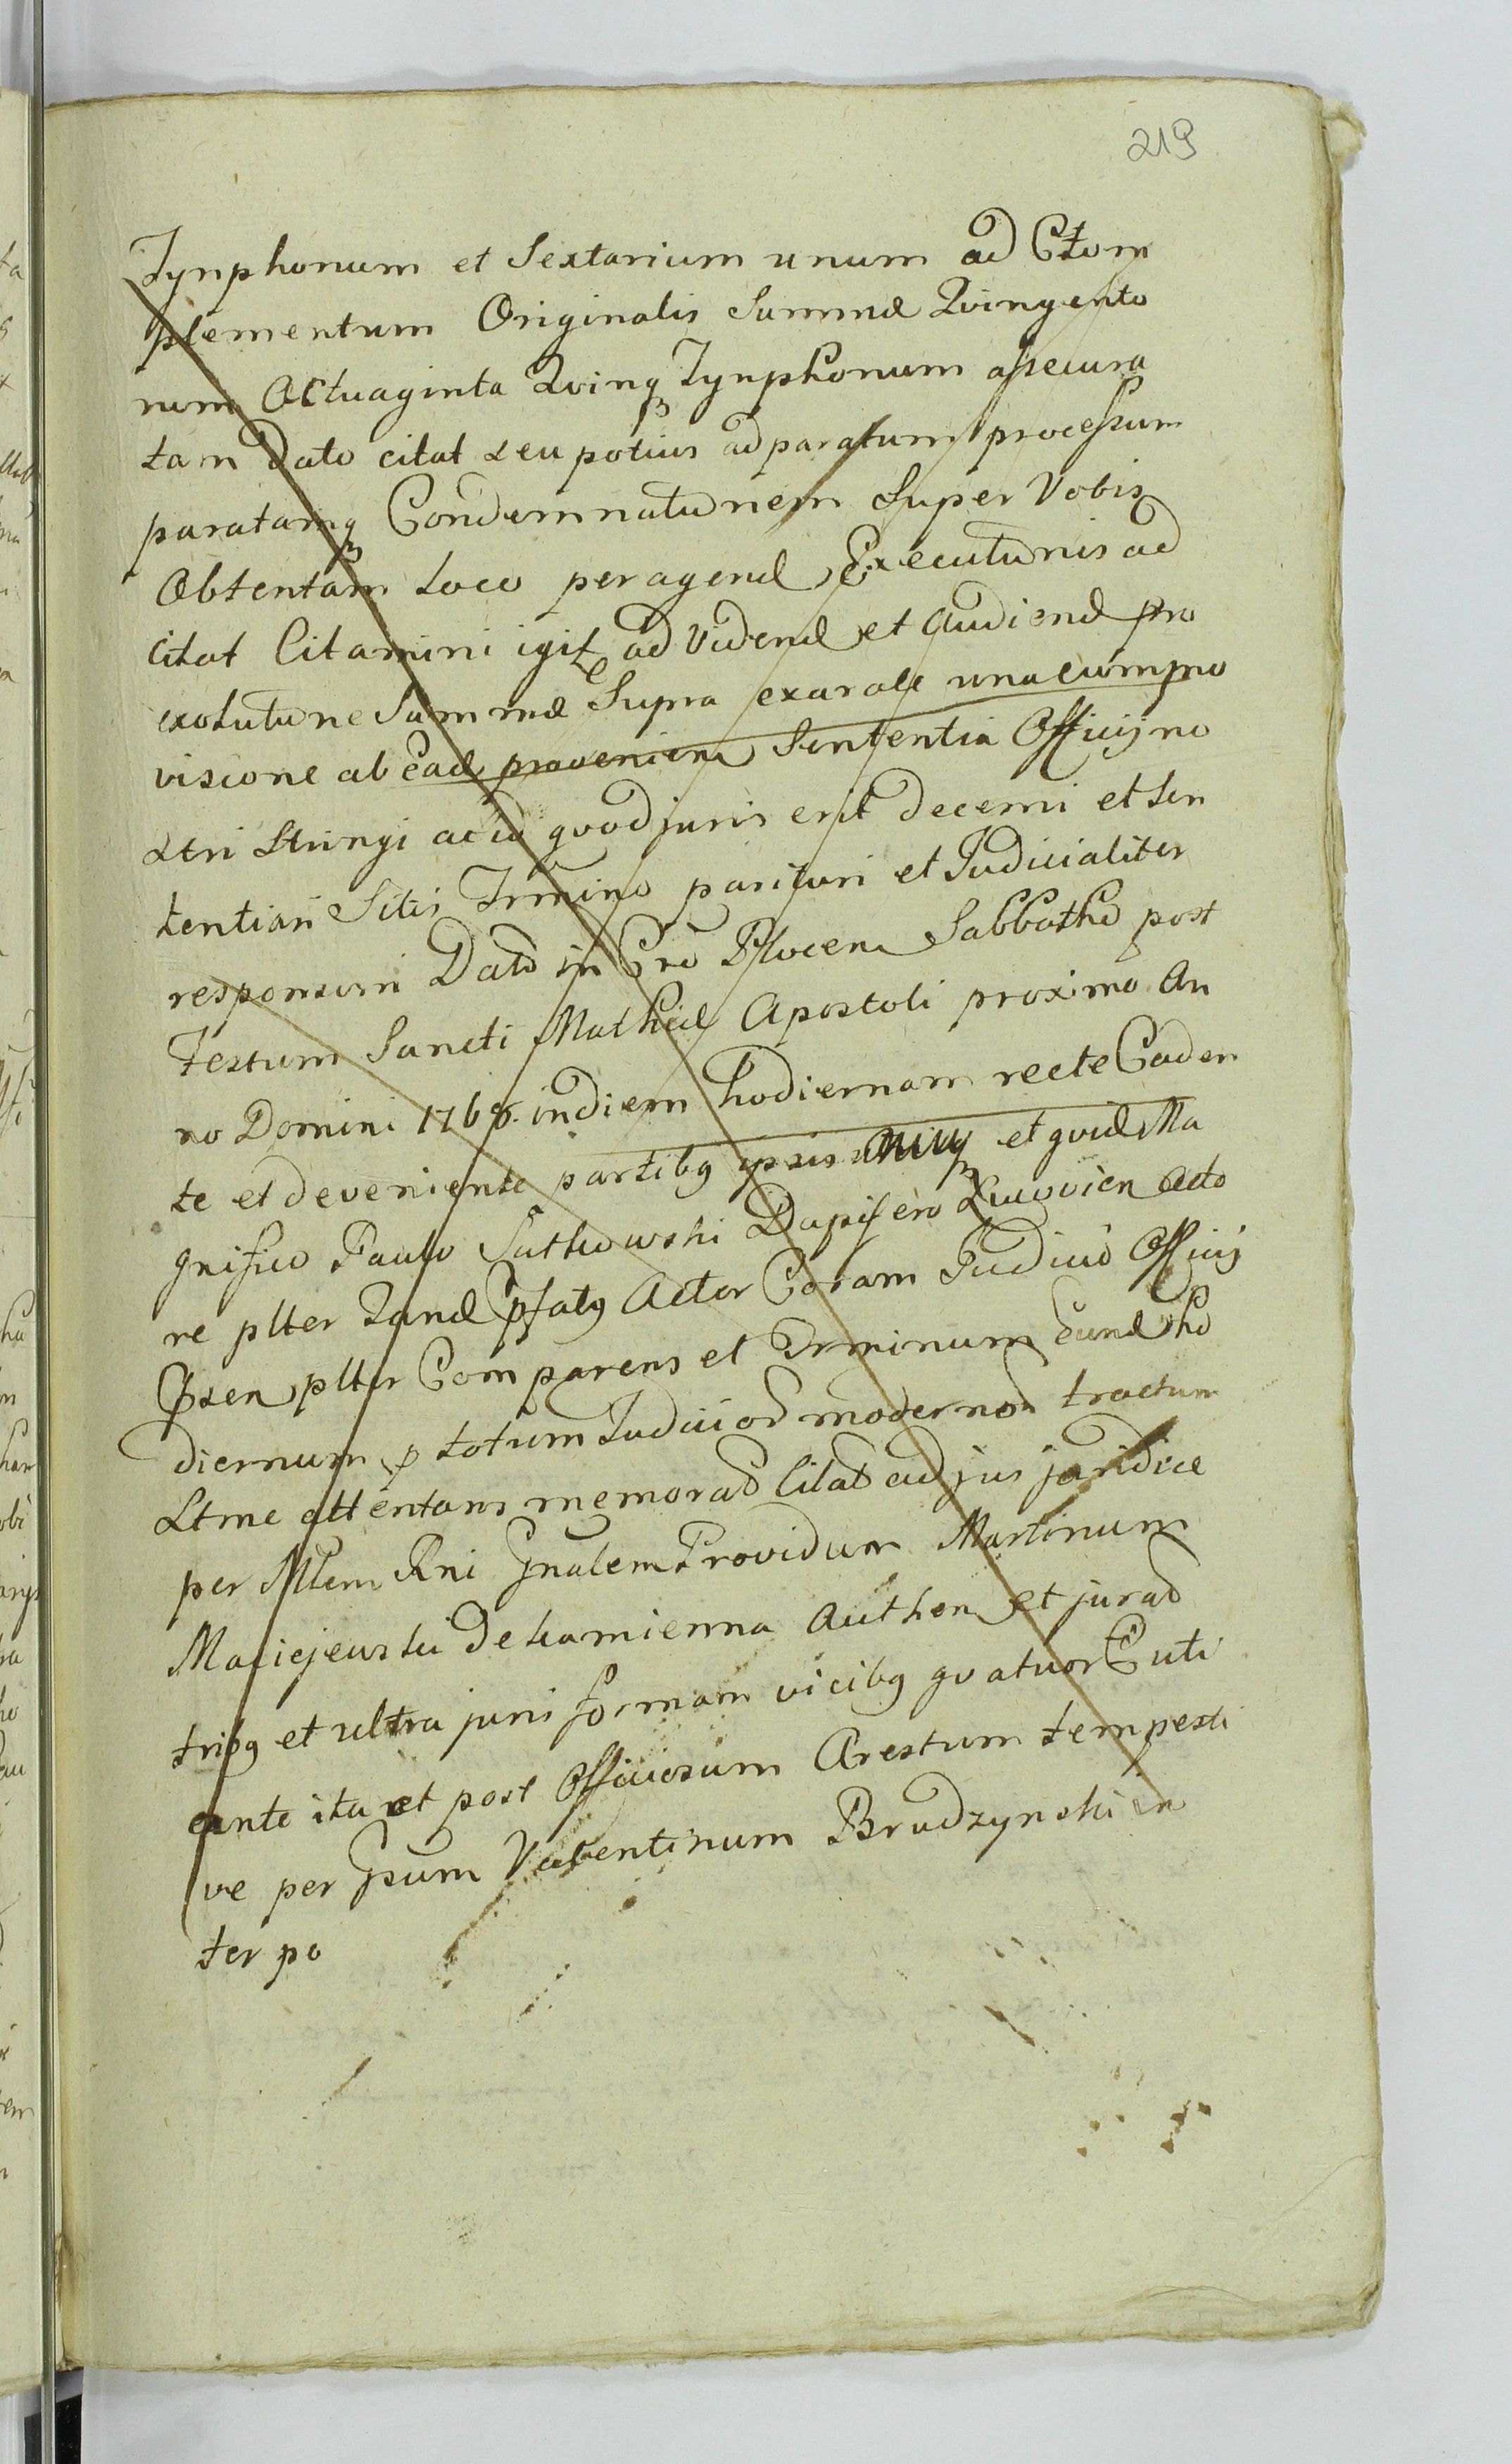 219
Tynphonum et Sextarium unum ad Com
plementum Originalis Summæ Qvingento
rum Octuaginta Qvinq Tynphonum assecura
tam Dato citat seu potius ad paratum processum
paratamq Condemnationem Super Vobis
Obtentam Loco peragend Executionis ad
citat Citamini igit ad Vidend et Audiend pro
exolutione Summæ Supra exaratæ una cum pro
visione ab ead provenien Sententia Officij no
stri Stringi ac id qvod juris erit decerni et Sen
tentiari Sitis Trmino parituri et Judicialiter
responsuri Dato in Cro Plocen Sabbatho post
Festum Sancti Mathiæ Apostoli proximo An
no Domini 176 in diem hodiernam recte Caden
te et deveniente partibg ipsis et qvid Ma
gnifico Paulo Sutkowski Dapifero Acto
re plter Tand Pfatg Actor Coram Judicio Officij
Psen plter Comparens et Trminum Eund ho
diernum p totum Judicior modernor tractum
Ltme attentans memorad Citat ad jus juridice
per Mlem Rni Gnalem Providum Martinum
Maciejewski de kamienna Authen et jurad
tribg et ultra juris formam vicibg qvatuor Cuti
ante ita et post Officiosum Arestum tempesti
ve per Gsum Valentinum Brudzynski in
ter po